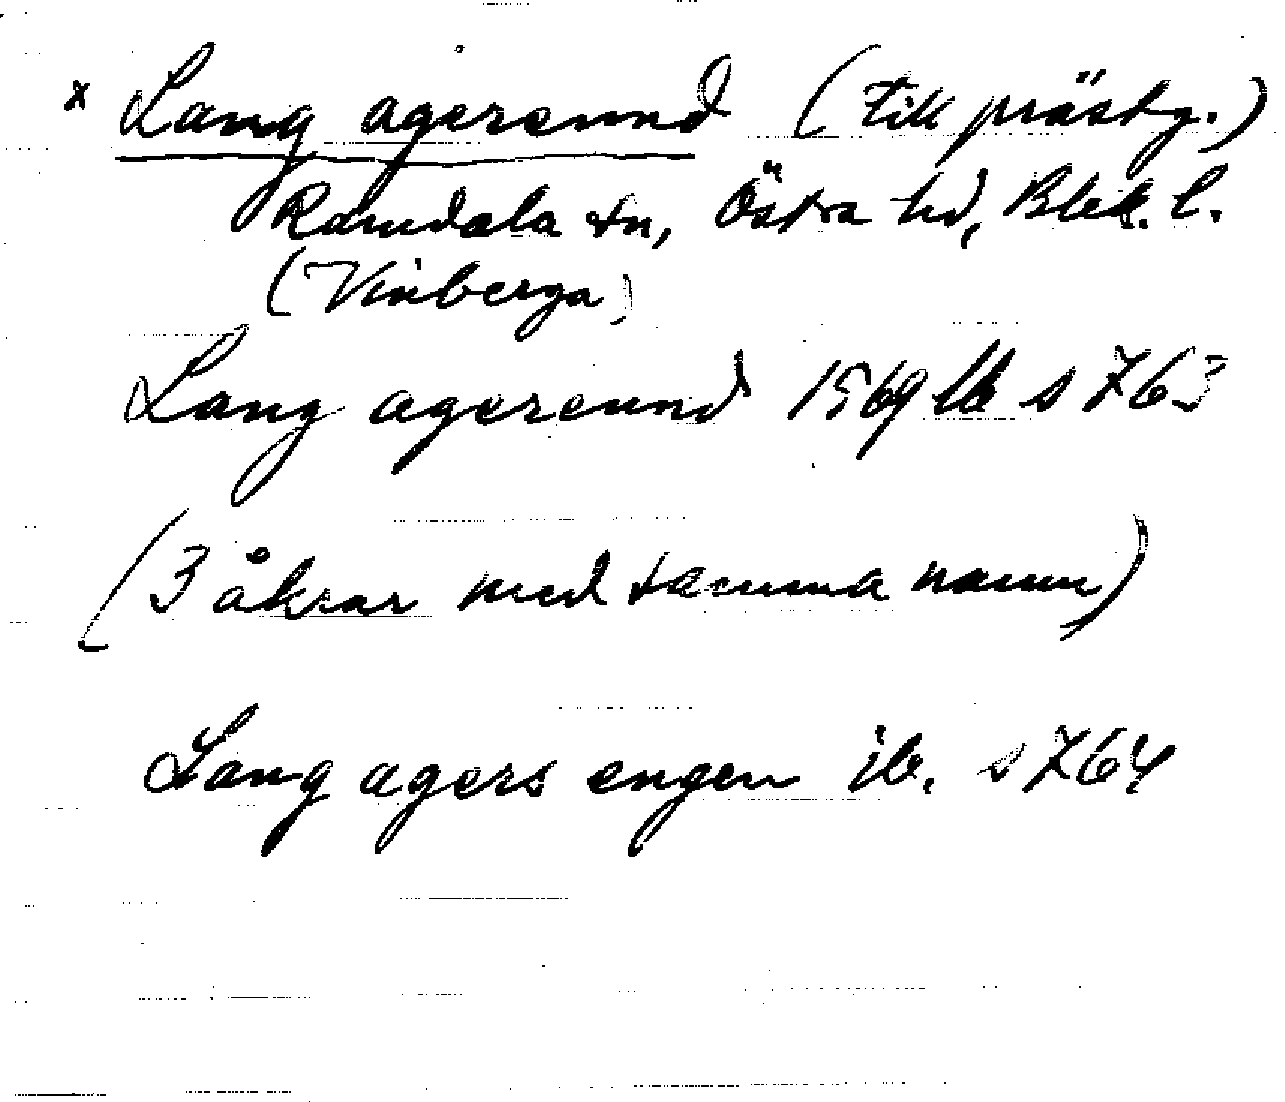 x Lang agerennd (till prästg.)
Ramdala sn, Östra hd, Blek. l.
(Vinberga)
Lang agerennd 1569 lb s 763
(3 åkrar med samma namn)
Lang agers engen ib. s 764